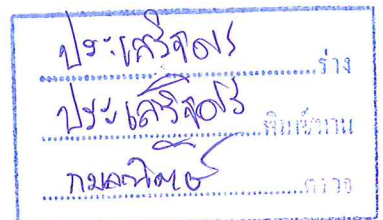 ประเสริฐพร ร่าง
ประเสริฐพร พิมพ์/ทาน
ตรวจ